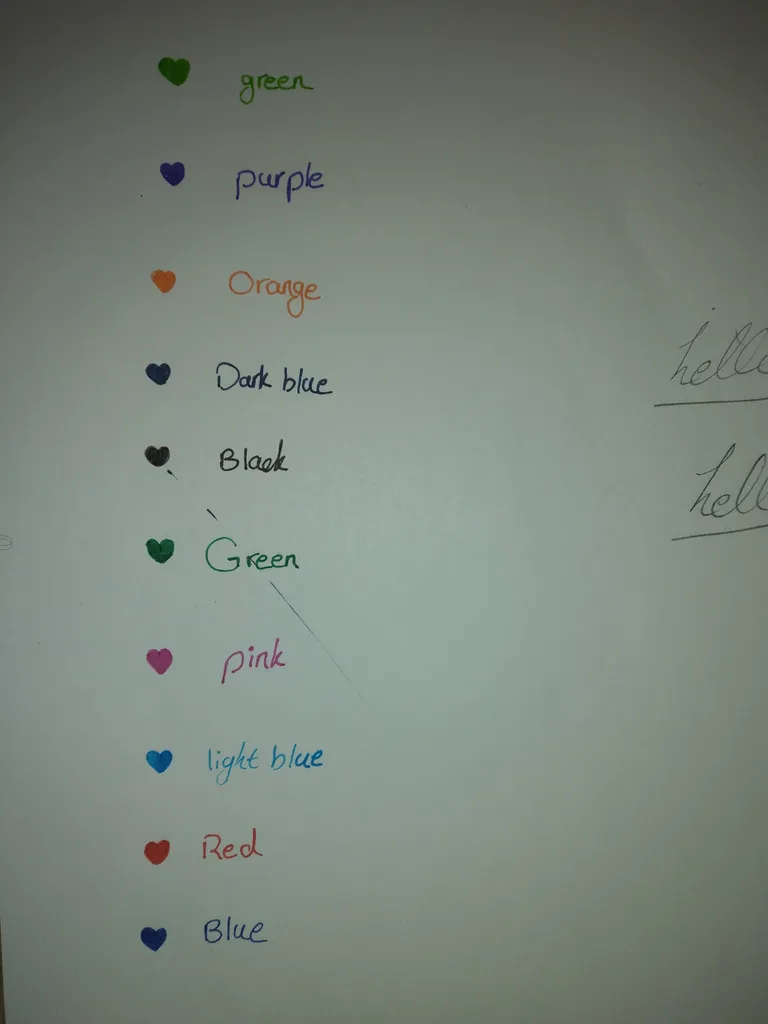 green
purple
Orange
Dark blue
Black
Green
pink
light blue
Red
Blue